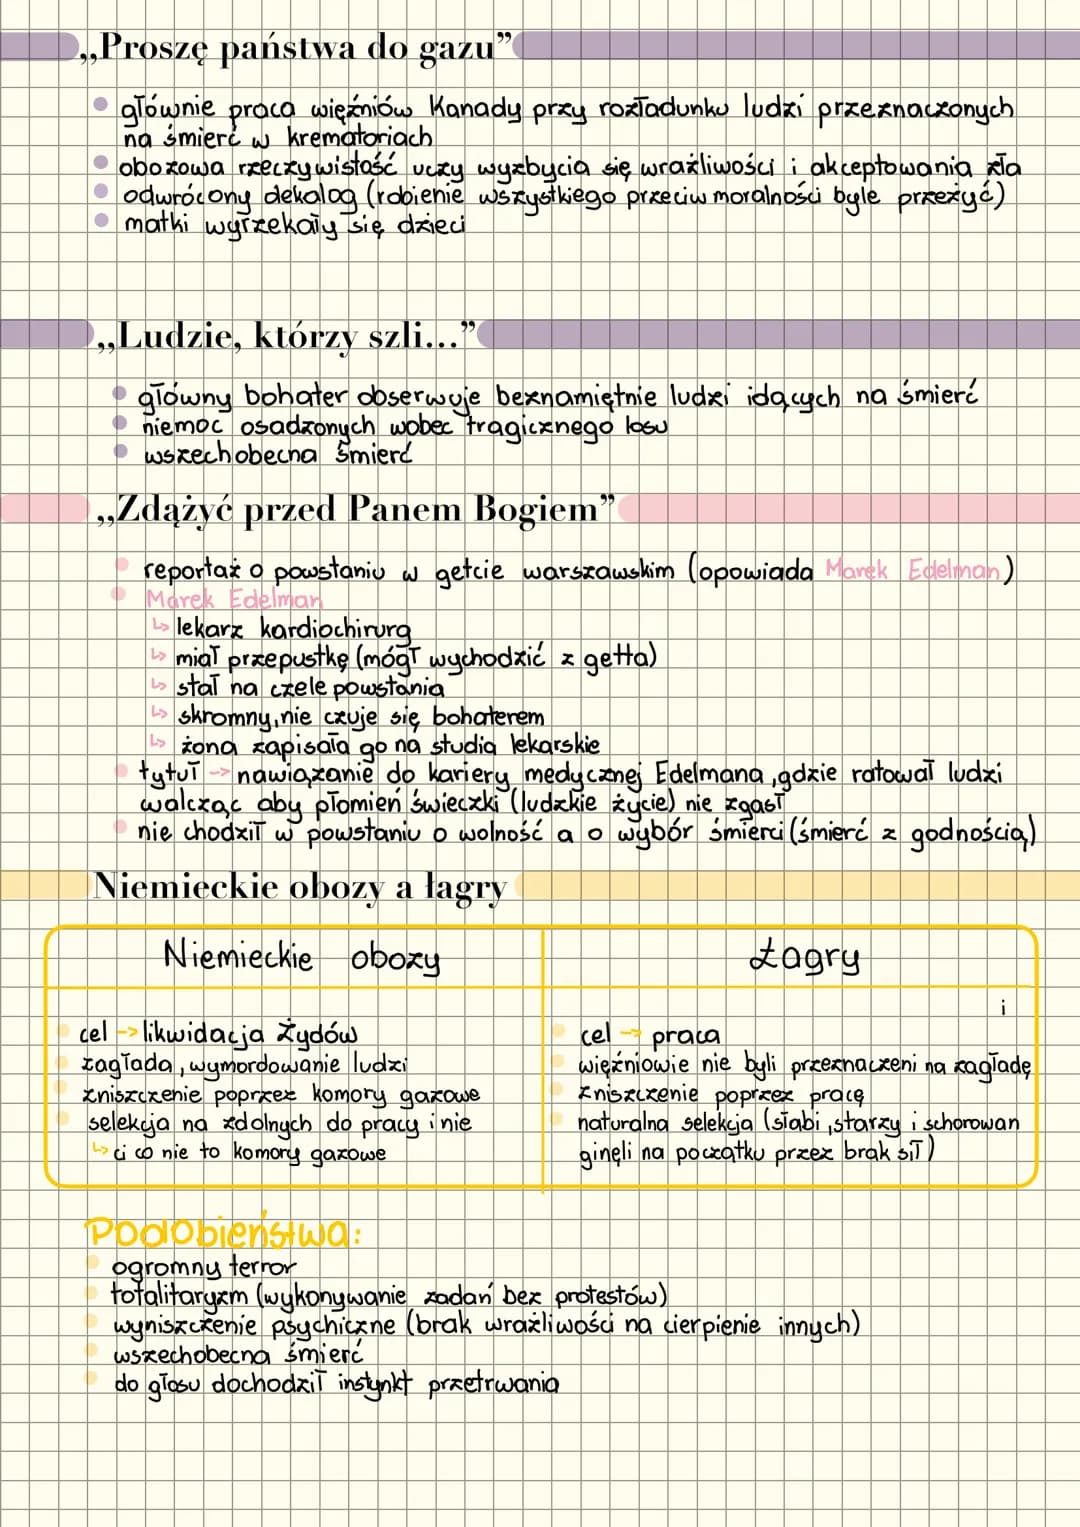 „Proszę państwa do gazu”
głównie praca więźniów Kanady przy rozładunku ludzi przeznaczonych
na śmierć w krematoriach
obozowa rzeczywistość uczy wyzbycia się wrażliwości i akceptowania zła
odwrócony dekalog (robienie wszystkiego przeciw moralności byle przeżyć)
matki wyrzekały się dzieci
„Ludzie, którzy szli...”
główny bohater obserwuje beznamiętnie ludzi idących na śmierć
niemoc osadzonych wobec tragicznego losu
wszechobecna śmierć
„Zdążyć przed Panem Bogiem”
reportaż o powstaniu w getcie warszawskim (opowiada Marek Edelman)
Marek Edelman
↳ lekarz kardiochirurg
↳ miał przepustkę (mógł wychodzić z getta)
↳ stał na czele powstania
↳ skromny, nie czuje się bohaterem
↳ żona zapisała go na studia lekarskie
tytuł -> nawiązanie do kariery medycznej Edelmana, gdzie ratował ludzi
walcząc aby płomień świeczki (ludzkie życie) nie zgasł
nie chodził w powstaniu o wolność a o wybór śmierci (śmierć z godnością)
Niemieckie obozy a łagry
Niemieckie obozy
cel -> likwidacja Żydów
zagłada, wymordowanie ludzi
zniszczenie poprzez komory gazowe
selekcja na zdolnych do pracy i nie
↳ ci co nie to komory gazowe
Łagry
i
cel -> praca
więźniowie nie byli przeznaczeni na zagładę
zniszczenie poprzez pracę
naturalna selekcja (słabi, starzy i schorowan
ginęli na początku przez brak sił)
Podobieństwa:
ogromny terror
totalitaryzm (wykonywanie zadań bez protestów)
wyniszczenie psychiczne (brak wrażliwości na cierpienie innych)
wszechobecna śmierć
do głosu dochodził instynkt przetrwania